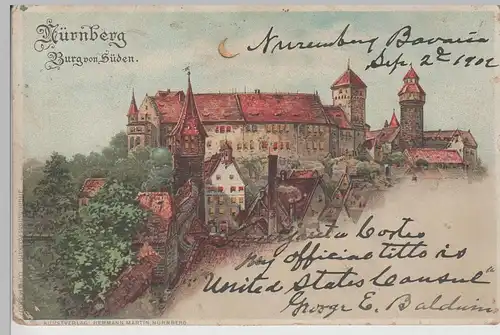 Nürnberg
Burg von Süden.
Nuremberg Bavaria
Sep. 2d 1902
my official title is
"United States Consul"
George E. Baldwin
KUNSTVERLAG HERMANN MARTIN, NÜRNBERG